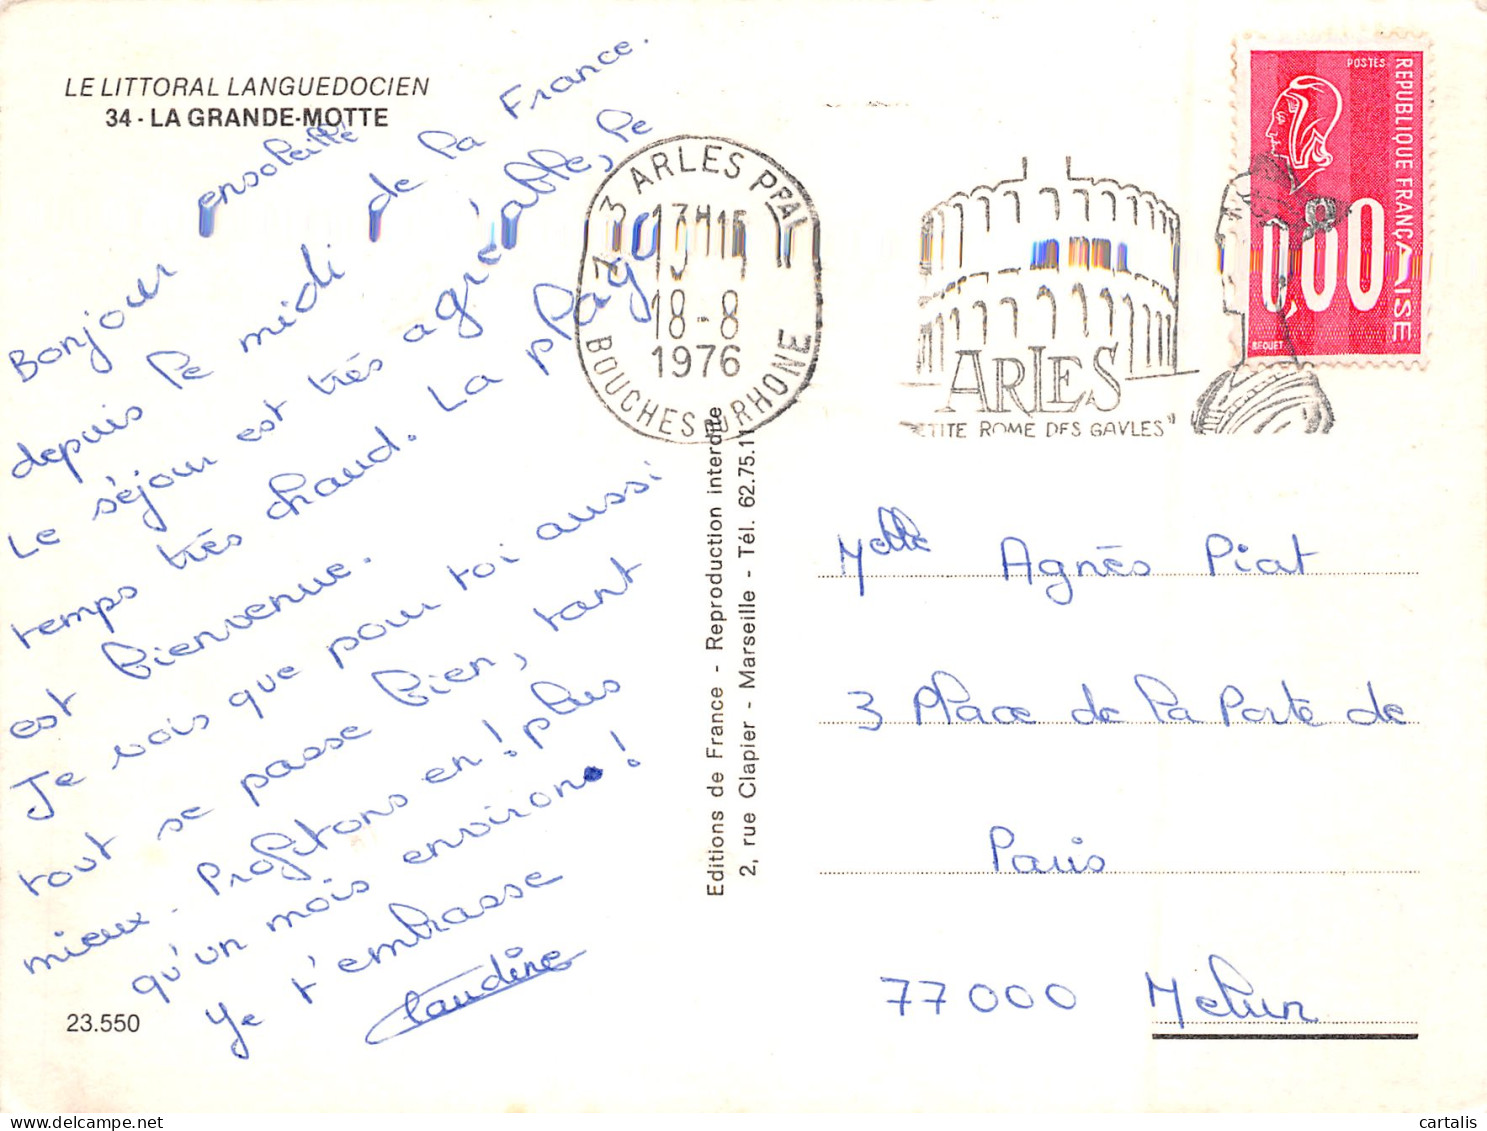 LE LITTORAL LANGUEDOCIEN
34 - LA GRANDE-MOTTE
Bonjour ensoleillé
depuis le midi de la France.
Le séjour est très agréable, le
temps très chaud. La plage
est bienvenue.
Je vois que pour toi aussi
tout se passe bien, tant
mieux. Profitons en! plus
qu'un mois environ!
Je t'embrasse
Claudine
23.550
Editions de France - Reproduction interdite
2, rue Clapier - Marseille - Tél. 62.75.11
13 ARLES PPAL
13H15
18-8
1976
BOUCHES DU RHONE
ARLES
ETITE ROME DES GAULES"
POSTES
REPUBLIQUE FRANÇAISE
BEQUET
Melle Agnès Piat
3 Place de la Porte de
Paris
77000 Melun
cartalis